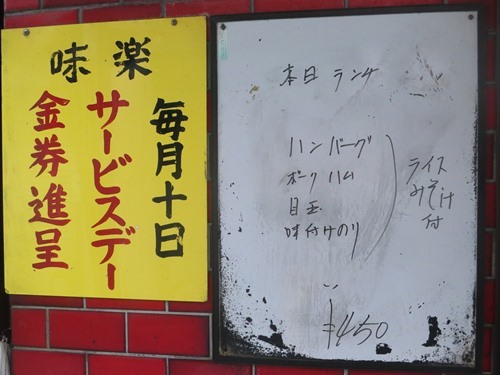 味楽
毎月十日
サービスデー
金券進呈
本日 ランチ
ハンバーグ
ポークハム
目玉
味付けのり
ライス
みそ汁
付
¥450